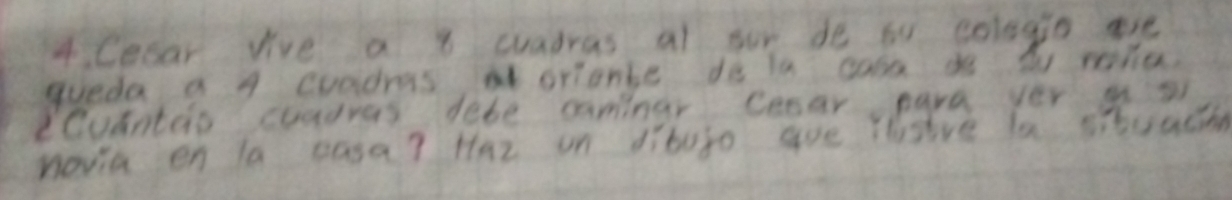 4. Cesar vive a 8 cuadras al sur de su colegio que
queda a 4 cuadras al oriente de la casa de su novia.
¿Cuántas cuadras debe caminar Cesar para ver a su
novia en la casa? Haz un dibujo que ilustre la situación